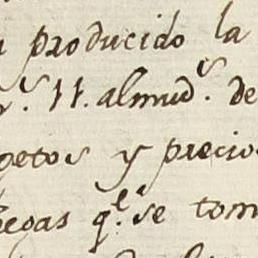 producido la
11. almud.s de
getos y precio
q.e se tom